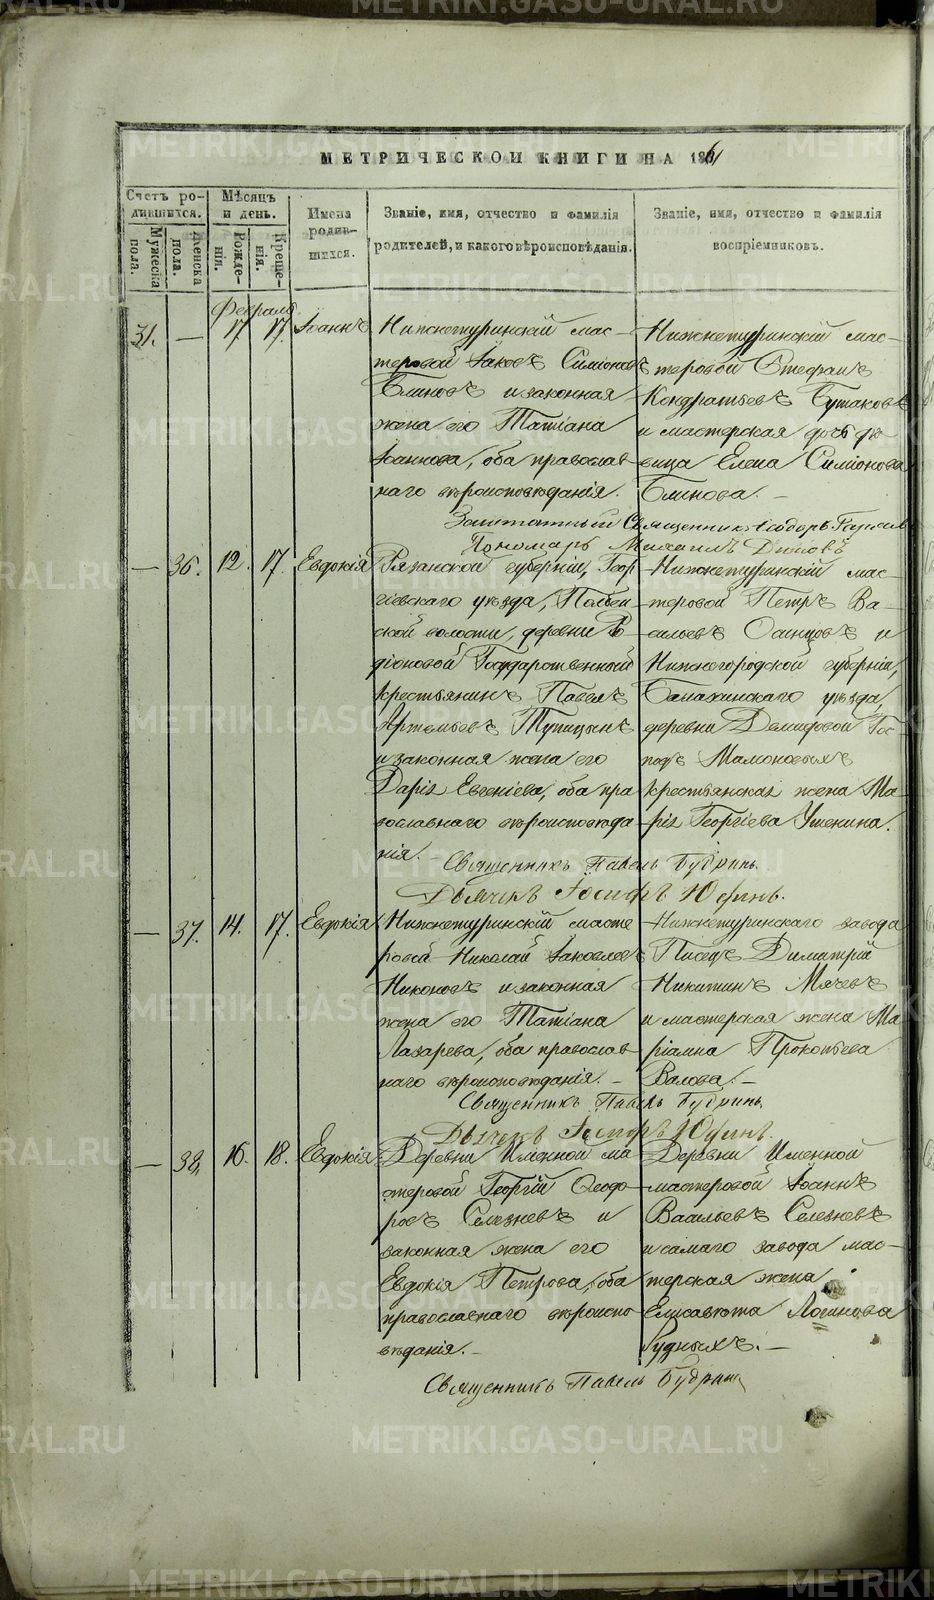 МЕТРИЧЕСКОЙ КНИГИ НА 1861
Счетъ ро-
дившихся.
Мѣсяцъ
и день.
Имена
родив-
шихся.
Званіе, имя, отчество и фамилія
родителей, и какого вѣроисповѣданія.
Званіе, имя, отчество и фамилія
воспріемниковъ.
Мужеска
пола.
Женска
пола.
Рожде-
нія.
Креще-
нія.
Февраль
31. — 17 17. Іоаннъ
Нижнетуринскій мас-
теровой Іаковъ Симіоновъ
Блиновъ и законная
жена его Татіана
Іоаннова, оба православ
наго вѣроисповѣданія.
Нижнетуринскій мас-
теровой Стефанъ
Кондратьевъ Бутаковъ
и мастерская дочь дѣ
вица Елена Симіонова
Блинова. —
Заштатный Священникъ Ѳеодоръ
Пономарь Михаилъ
— 36. 12. 17. Евдокія
Рязанской губерніи, Геор
гіевскаго уѣзда,
ской волости, деревни Ро
діоновой Государственный
крестьянинъ Павелъ
Артемьевъ Тупицынъ
и законная жена его
Дарія Евгеніева, оба пра
вославнаго вѣроисповѣда
нія. —
Нижнетуринскій мас-
теровой Петръ Ва-
сильевъ Осинцовъ и
Нижнегородской губерніи,
Балахнинскаго уѣзда,
деревни Демидовой Гос-
подъ Мамоновыхъ
крестьянская жена Ма-
рія Георгіева Ушенина.
Священникъ Павелъ Будринъ.
Дьячекъ Іосифъ Юфинъ.
— 37. 14. 17. Евдокія
Нижнетуринскій масте
ровой Николай Іаковлевъ
Никоновъ и законная
жена его Татіана
Лазарева, оба православ
наго вѣроисповѣданія. —
Нижнетуринскаго завода
Писецъ Димитрій
Никитинъ Мячевъ
и мастерская жена Ма
ріамна Прокопьева
Валова. —
Священникъ Павелъ Будринъ.
Дьячекъ Іосифъ Юфинъ.
— 38. 16. 18. Евдокія
Деревни Именной ма
стеровой Георгій Ѳеодо-
ровъ Селезневъ и
законная жена его
Евдокія Петрова, оба
православнаго вѣроиспо
вѣданія. —
Деревни Именной
мастеровой Іоаннъ
Васильевъ Селезневъ
и самаго завода мас-
терская жена
Елисавета Логинова
Рудныхъ. —
Священникъ Павелъ Будринъ
METRIKI.GASO-URAL.RU